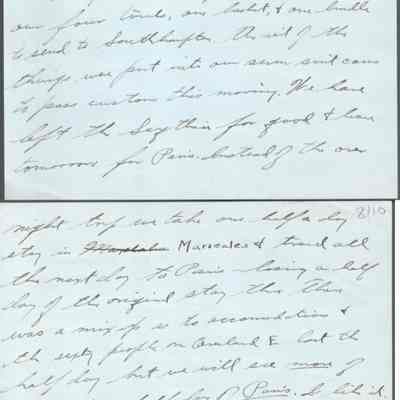 our four trunks, one basket, & one bundle
to send to Southampton. The rest of the
things were put into our seven suit cases
to pass customs this morning. We have
left the for good & leave
tomorrow for Paris. Instead of the over
8/10
night trip we take one half a day
stay in Marseales & travel all
the next day to Paris losing a half
day of the original stay there. There
was a mix up as to accomodations &
the sixty people on Overland E lost the
half day but we will see more of
of Paris. I like it.